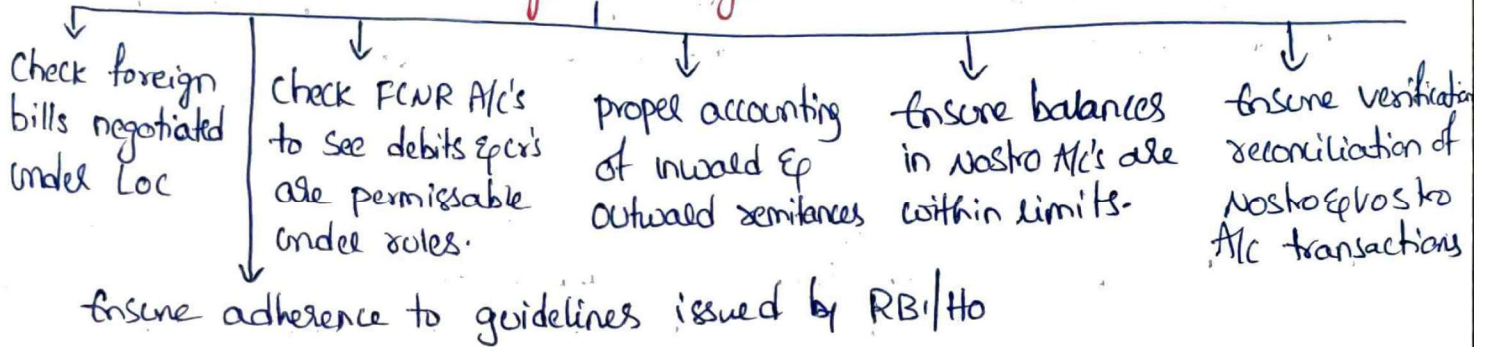 Check foreign
bills negotiated
under Loc
Check FCNR A/c's
to see debits & cr's
are permissable
under rules.
proper accounting
of inward &
outward remitances
Ensure balances
in Nostro A/c's are
within limits.
Ensure verification
reconciliation of
Nostro & vostro
A/c transactions
Ensure adherence to guidelines issued by RBI/HO